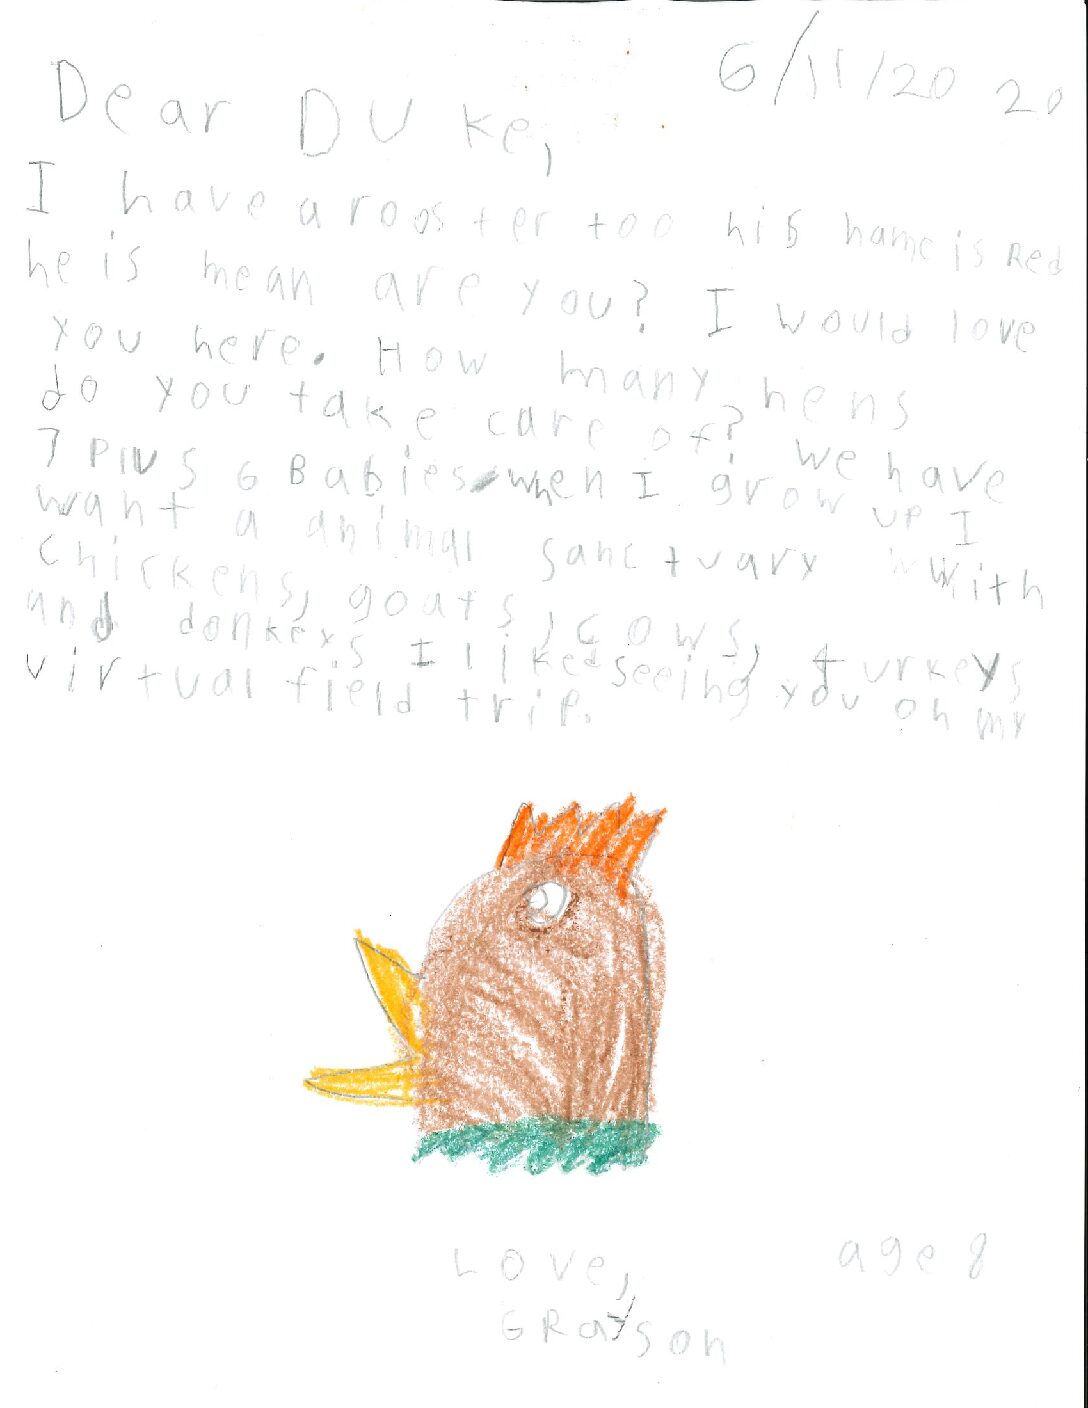 6/11/2020
Dear DUke,
I have a rooster too his name is Red
he is mean are you? I would love
you here. How many hens
do you take care of? We have
7 Plus 6 Babies when I grow up I
want a animal sanctuary with
chickens, goats, cows, turkeys
and donkeys I liked seeing you on my
virtual field trip.
Love,
GRayson
age 8